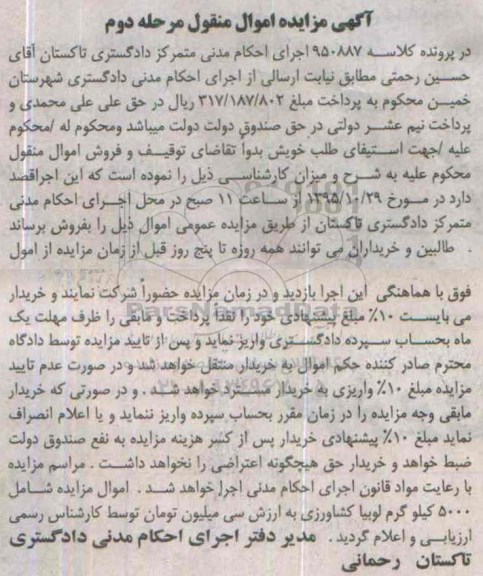 آگهی مزایده اموال منقول مرحله دوم
در پرونده کلاسه ۹۵۰۸۸۷ اجرای احکام مدنی متمرکز دادگستری تاکستان آقای
حسین رحمتی مطابق نیابت ارسالی از اجرای احکام مدنی دادگستری شهرستان
خمین محکوم به پرداخت مبلغ ۳۱۷/۱۸۷/۸۰۲ ریال در حق علی علی محمدی و
پرداخت نیم عشر دولتی در حق صندوق دولت دولت میباشد ومحکوم له /محکوم
علیه /جهت استیفای طلب خویش بدواً تقاضای توقیف و فروش اموال منقول
محکوم علیه به شرح و میزان کارشناسی ذیل را نموده است که این اجراقصد
دارد در مورخ ۱۳۹۵/۱۰/۲۹ از ساعت ۱۱ صبح در محل اجرای احکام مدنی
متمرکز دادگستری تاکستان از طریق مزایده عمومی اموال ذیل را بفروش برساند
. طالبین و خریداران می توانند همه روزه تا پنج روز قبل از زمان مزایده از امول
فوق با هماهنگی این اجرا بازدید و در زمان مزایده حضوراً شرکت نمایند و خریدار
می بایست ۱۰٪ مبلغ پیشنهادی خود را نقداً پرداخت و مابقی را ظرف مهلت یک
ماه بحساب سپرده دادگستری واریز نماید و پس از تایید مزایده توسط دادگاه
محترم صادر کننده حکم اموال به خریدار منتقل خواهد شد و در صورت عدم تایید
مزایده مبلغ ۱۰٪ واریزی به خریدار مسترد خواهد شد . و در صورتی که خریدار
مابقی وجه مزایده را در زمان مقرر بحساب سپرده واریز ننماید و یا اعلام انصراف
نماید مبلغ ۱۰٪ پیشنهادی خریدار پس از کسر هزینه مزایده به نفع صندوق دولت
ضبط خواهد و خریدار حق هیچگونه اعتراضی را نخواهد داشت . مراسم مزایده
با رعایت مواد قانون اجرای احکام مدنی اجرا خواهد شد . اموال مزایده شامل
۵۰۰۰ کیلو گرم لوبیا کشاورزی به ارزش سی میلیون تومان توسط کارشناس رسمی
ارزیابی و اعلام گردید . مدیر دفتر اجرای احکام مدنی دادگستری
تاکستان رحمانی